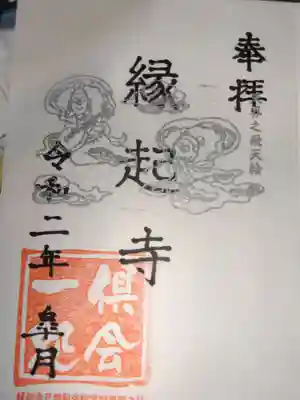 奉拝
之飛天絵
縁起寺
令和二年皐月
倶会
一処